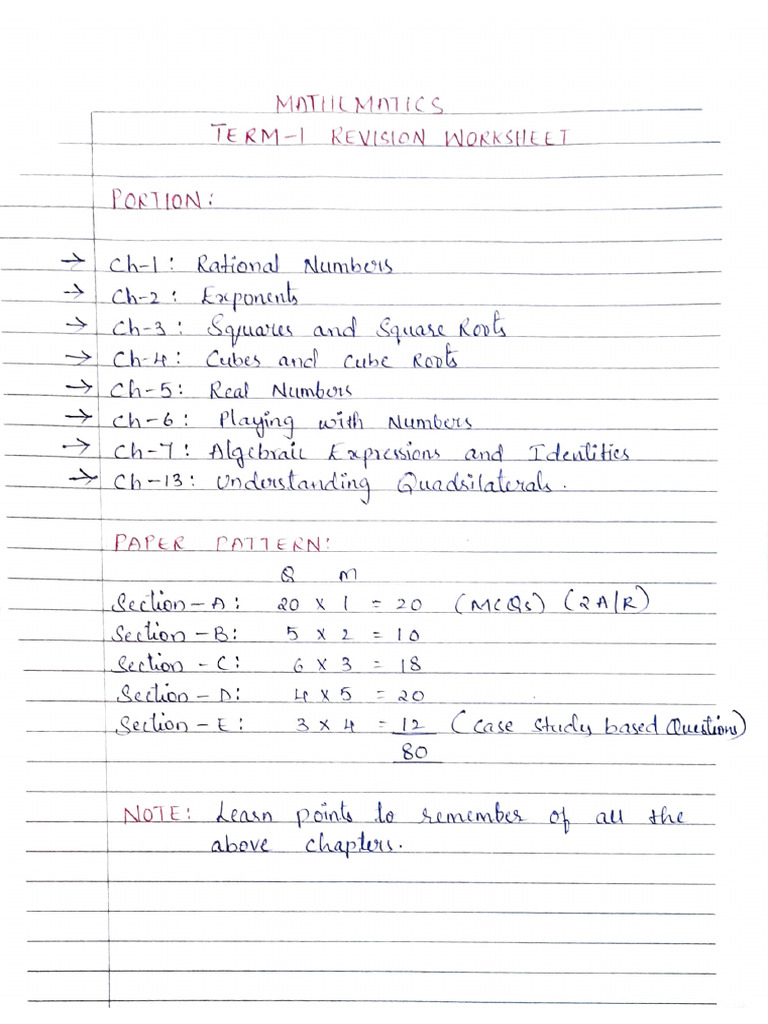 MATHEMATICS
TERM-1 REVISION WORKSHEET
PORTION:
→ Ch-1: Rational Numbers
→ Ch-2: Exponents
→ Ch-3: Squares and Square Roots
→ Ch-4: Cubes and Cube Roots
→ Ch-5: Real Numbers
→ Ch-6: Playing with Numbers
→ Ch-7: Algebraic Expressions and Identities
→ Ch-13: Understanding Quadrilaterals.
PAPER PATTERN:
Q M
Section-A: 20 × 1 = 20 (MCQs) (2A/R)
Section-B: 5 × 2 = 10
Section-C: 6 × 3 = 18
Section-D: 4 × 5 = 20
Section-E: 3 × 4 = 12 (Case study based Questions)
80
NOTE: Learn points to remember of all the
above chapters.